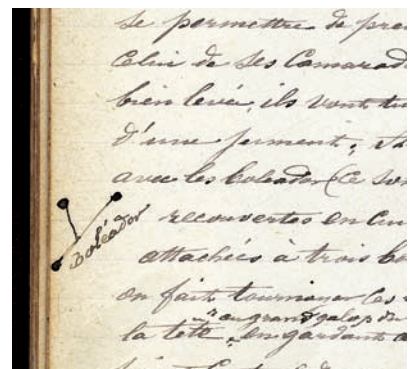 se permettre de pren
Celui de ses Camarad
bien levé, ils vont tu
d'une jument,
avec les boleador (Ce son
boléador
recouvertes en cui
attachées à trois bo
on fait tournoyer ces
au grand galop du
la tête, en gardant